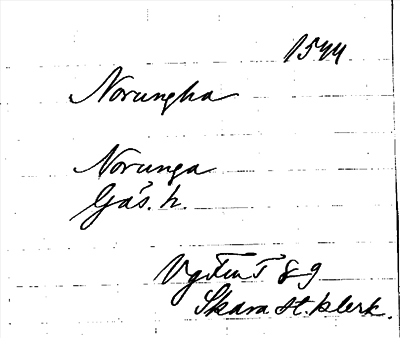 1544
Norungha
Norunga
Gäs. h.
VgFtuT 89
Skara st. klerk.